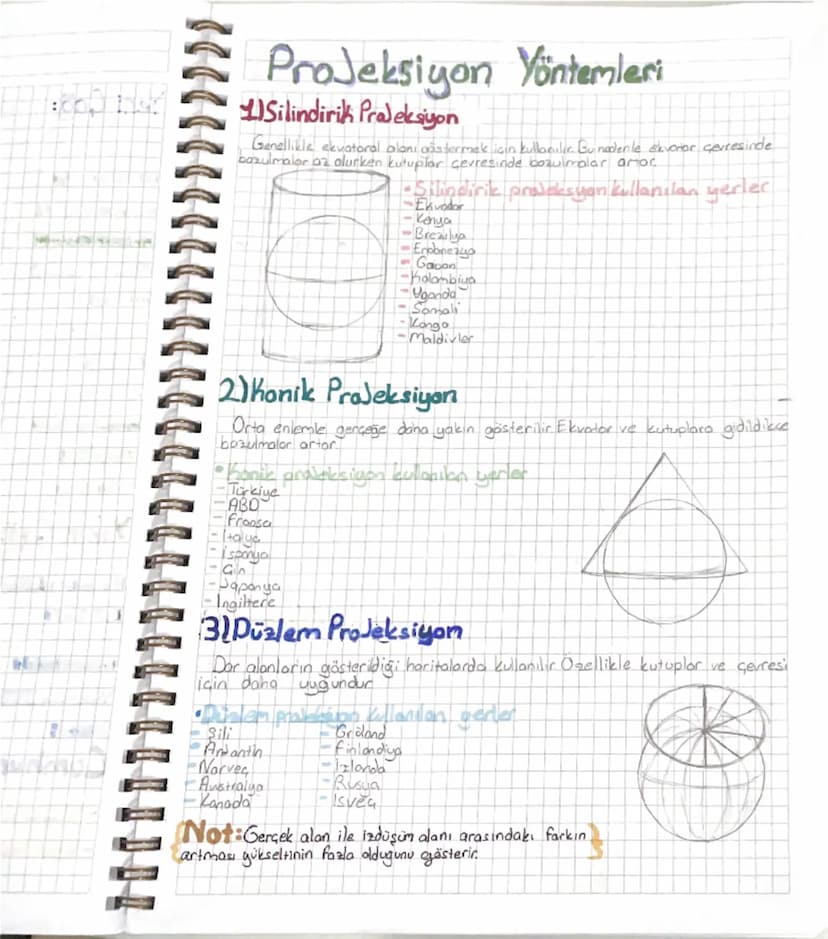 Projeksiyon Yöntemleri
1) Silindirik Projeksiyon
Genellikle ekvatoral alanı göstermek için kullanılır. Bu nedenle ekvator çevresinde
bozulmalar az olurken kutuplar çevresinde bozulmalar artar.
• Silindirik projeksiyon kullanılan yerler
- Ekvador
- Kenya
- Brezilya
- Endonezya
- Gabon
- Kolombiya
- Uganda
- Somali
- Kongo
- Maldivler
2) Konik Projeksiyon
Orta enlemle gerçeğe daha yakın gösterilir. Ekvator ve kutuplara gidildikçe
bozulmalar artar.
• Konik projeksiyon kullanılan yerler
- Türkiye
- ABD
- Fransa
- İtalya
- İspanya
- Çin
- Japonya
- İngiltere
3) Düzlem Projeksiyon
Dar alanların gösterildiği haritalarda kulanılır. Özellikle kutuplar ve çevresi
için daha uygundur
• Düzlem projeksiyon kullanılan yerler
- Şili
- Arjantin
- Norveç
- Avustralya
- Kanada
- Gröland
- Finlandiya
- İzlanda
- Rusya
- İsveç
Not: Gerçek alan ile izdüşüm alanı arasındaki farkın
artması yükseltinin fazla olduğunu gösterir.